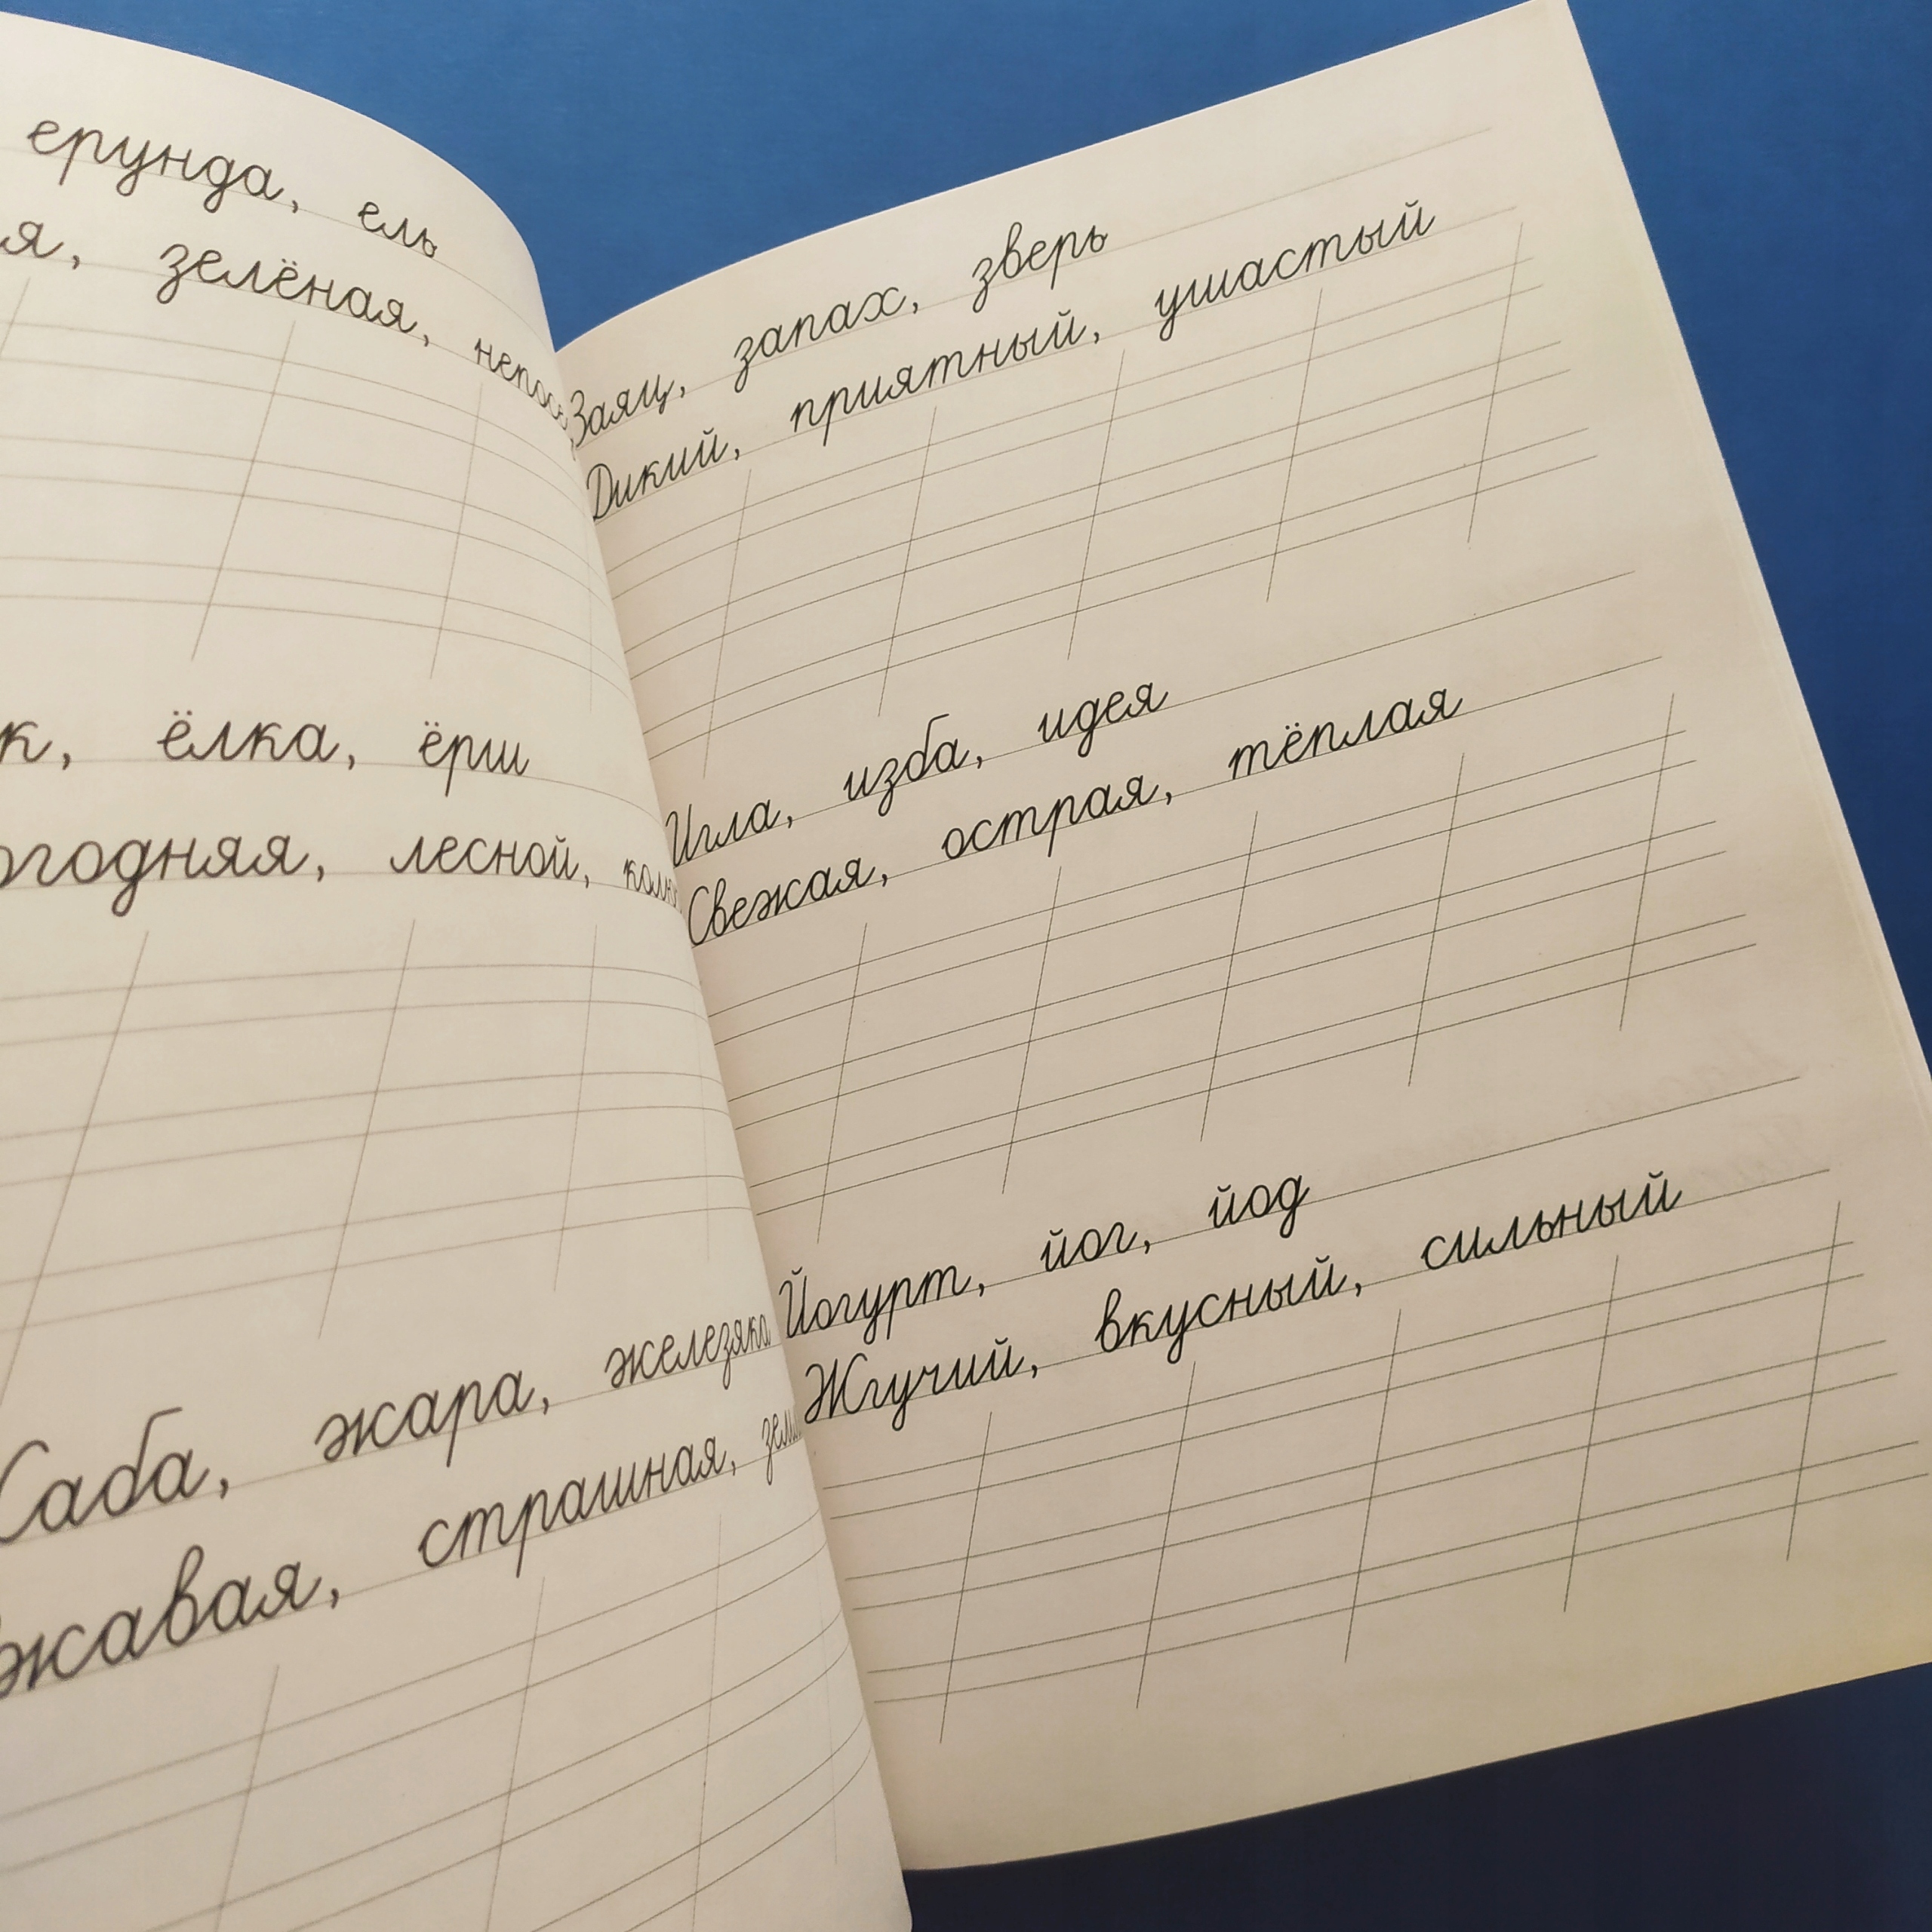 ерунда, ель
зелёная,
ёлка, ёрш
лесной,
жара, железяка
страшная,
Заяц, запах, зверь
Дикий, приятный, ушастый
Игла, изба, идея
Свежая, острая, тёплая
Йогурт, йог, йод
Жгучий, вкусный, сильный